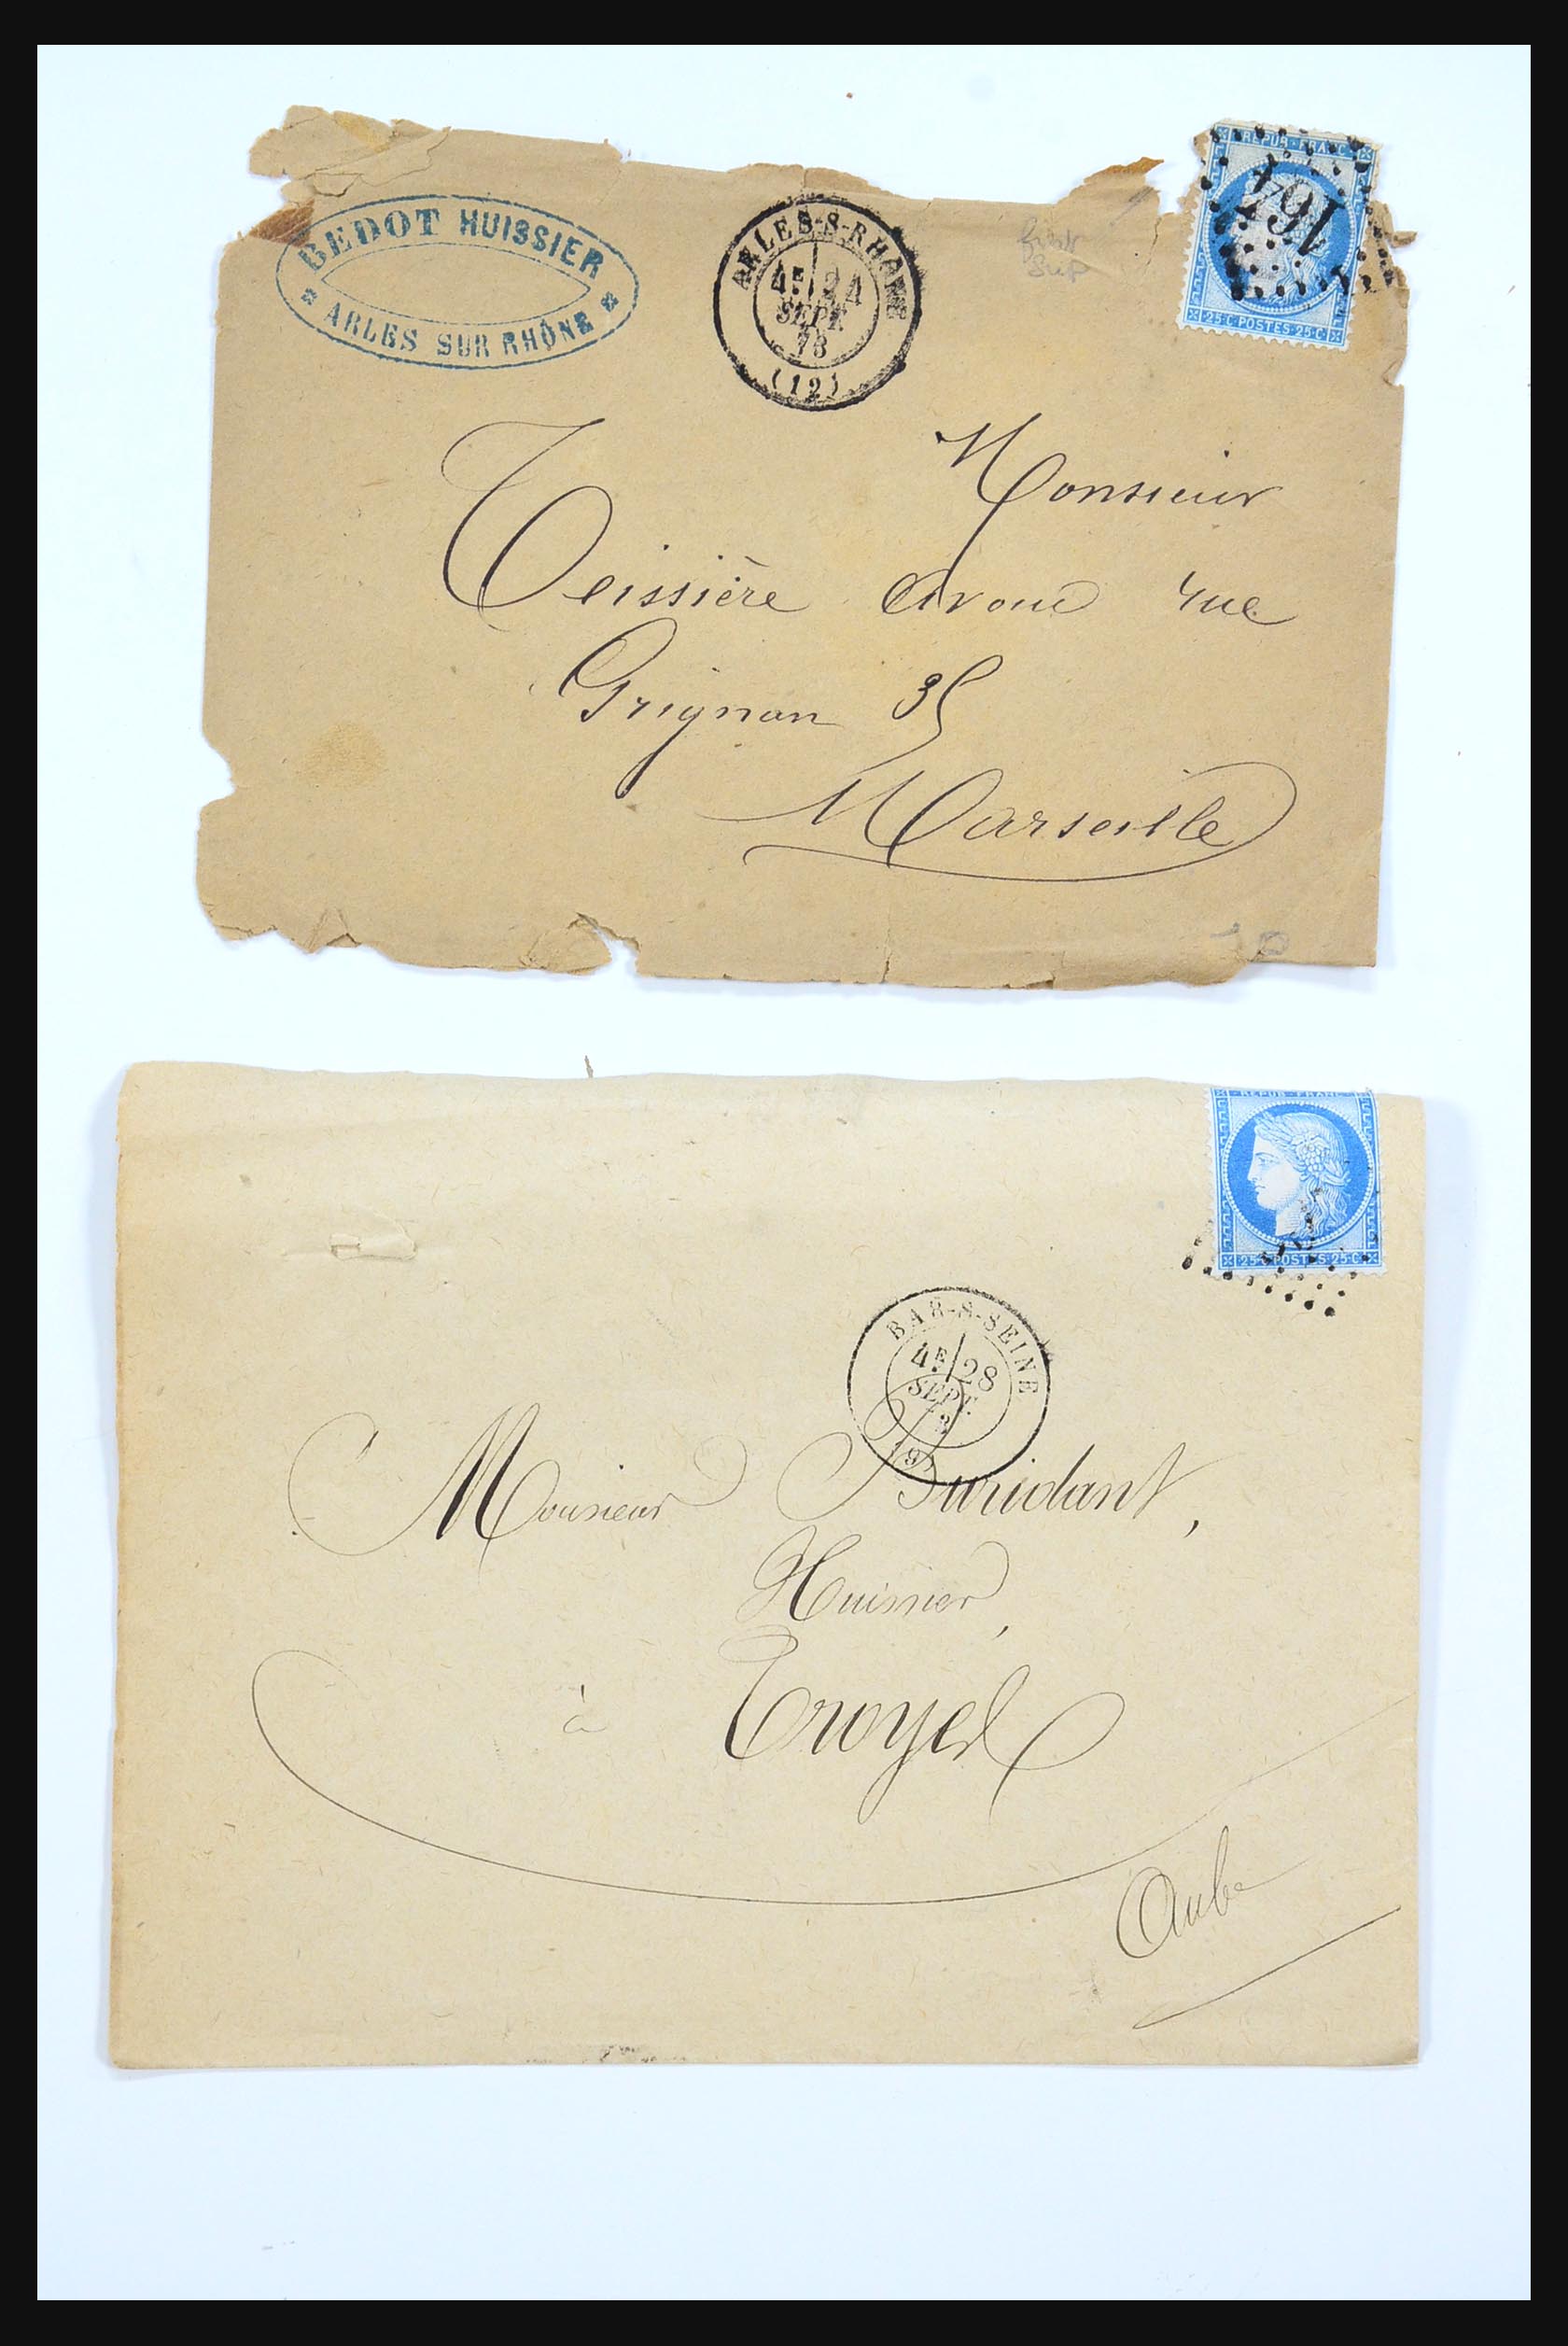 BEDOT HUISSIER
* ARLES SUR RHÔNE *
ARLES-S-RHONE
4E 24
SEPT
73
(12)
REPUB · FRANC
164
25·C·POSTES·25·C
Monsieur
Teissière Avoué rue
Grignan 35
Marseille
REPUB · FRANC
25·C·POSTES·25·C
BAR-S-SEINE
4E 28
SEPT.
(9)
Monsieur Buridant,
Huissier,
à Troyes
Aube